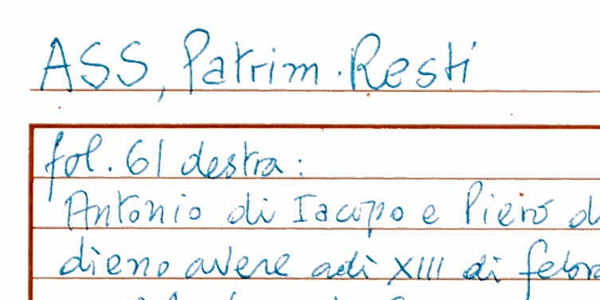 ASS, Patrim. Resti
fol. 61 destra:
Antonio di Iacopo e Piero
dieno avere adì XIII di